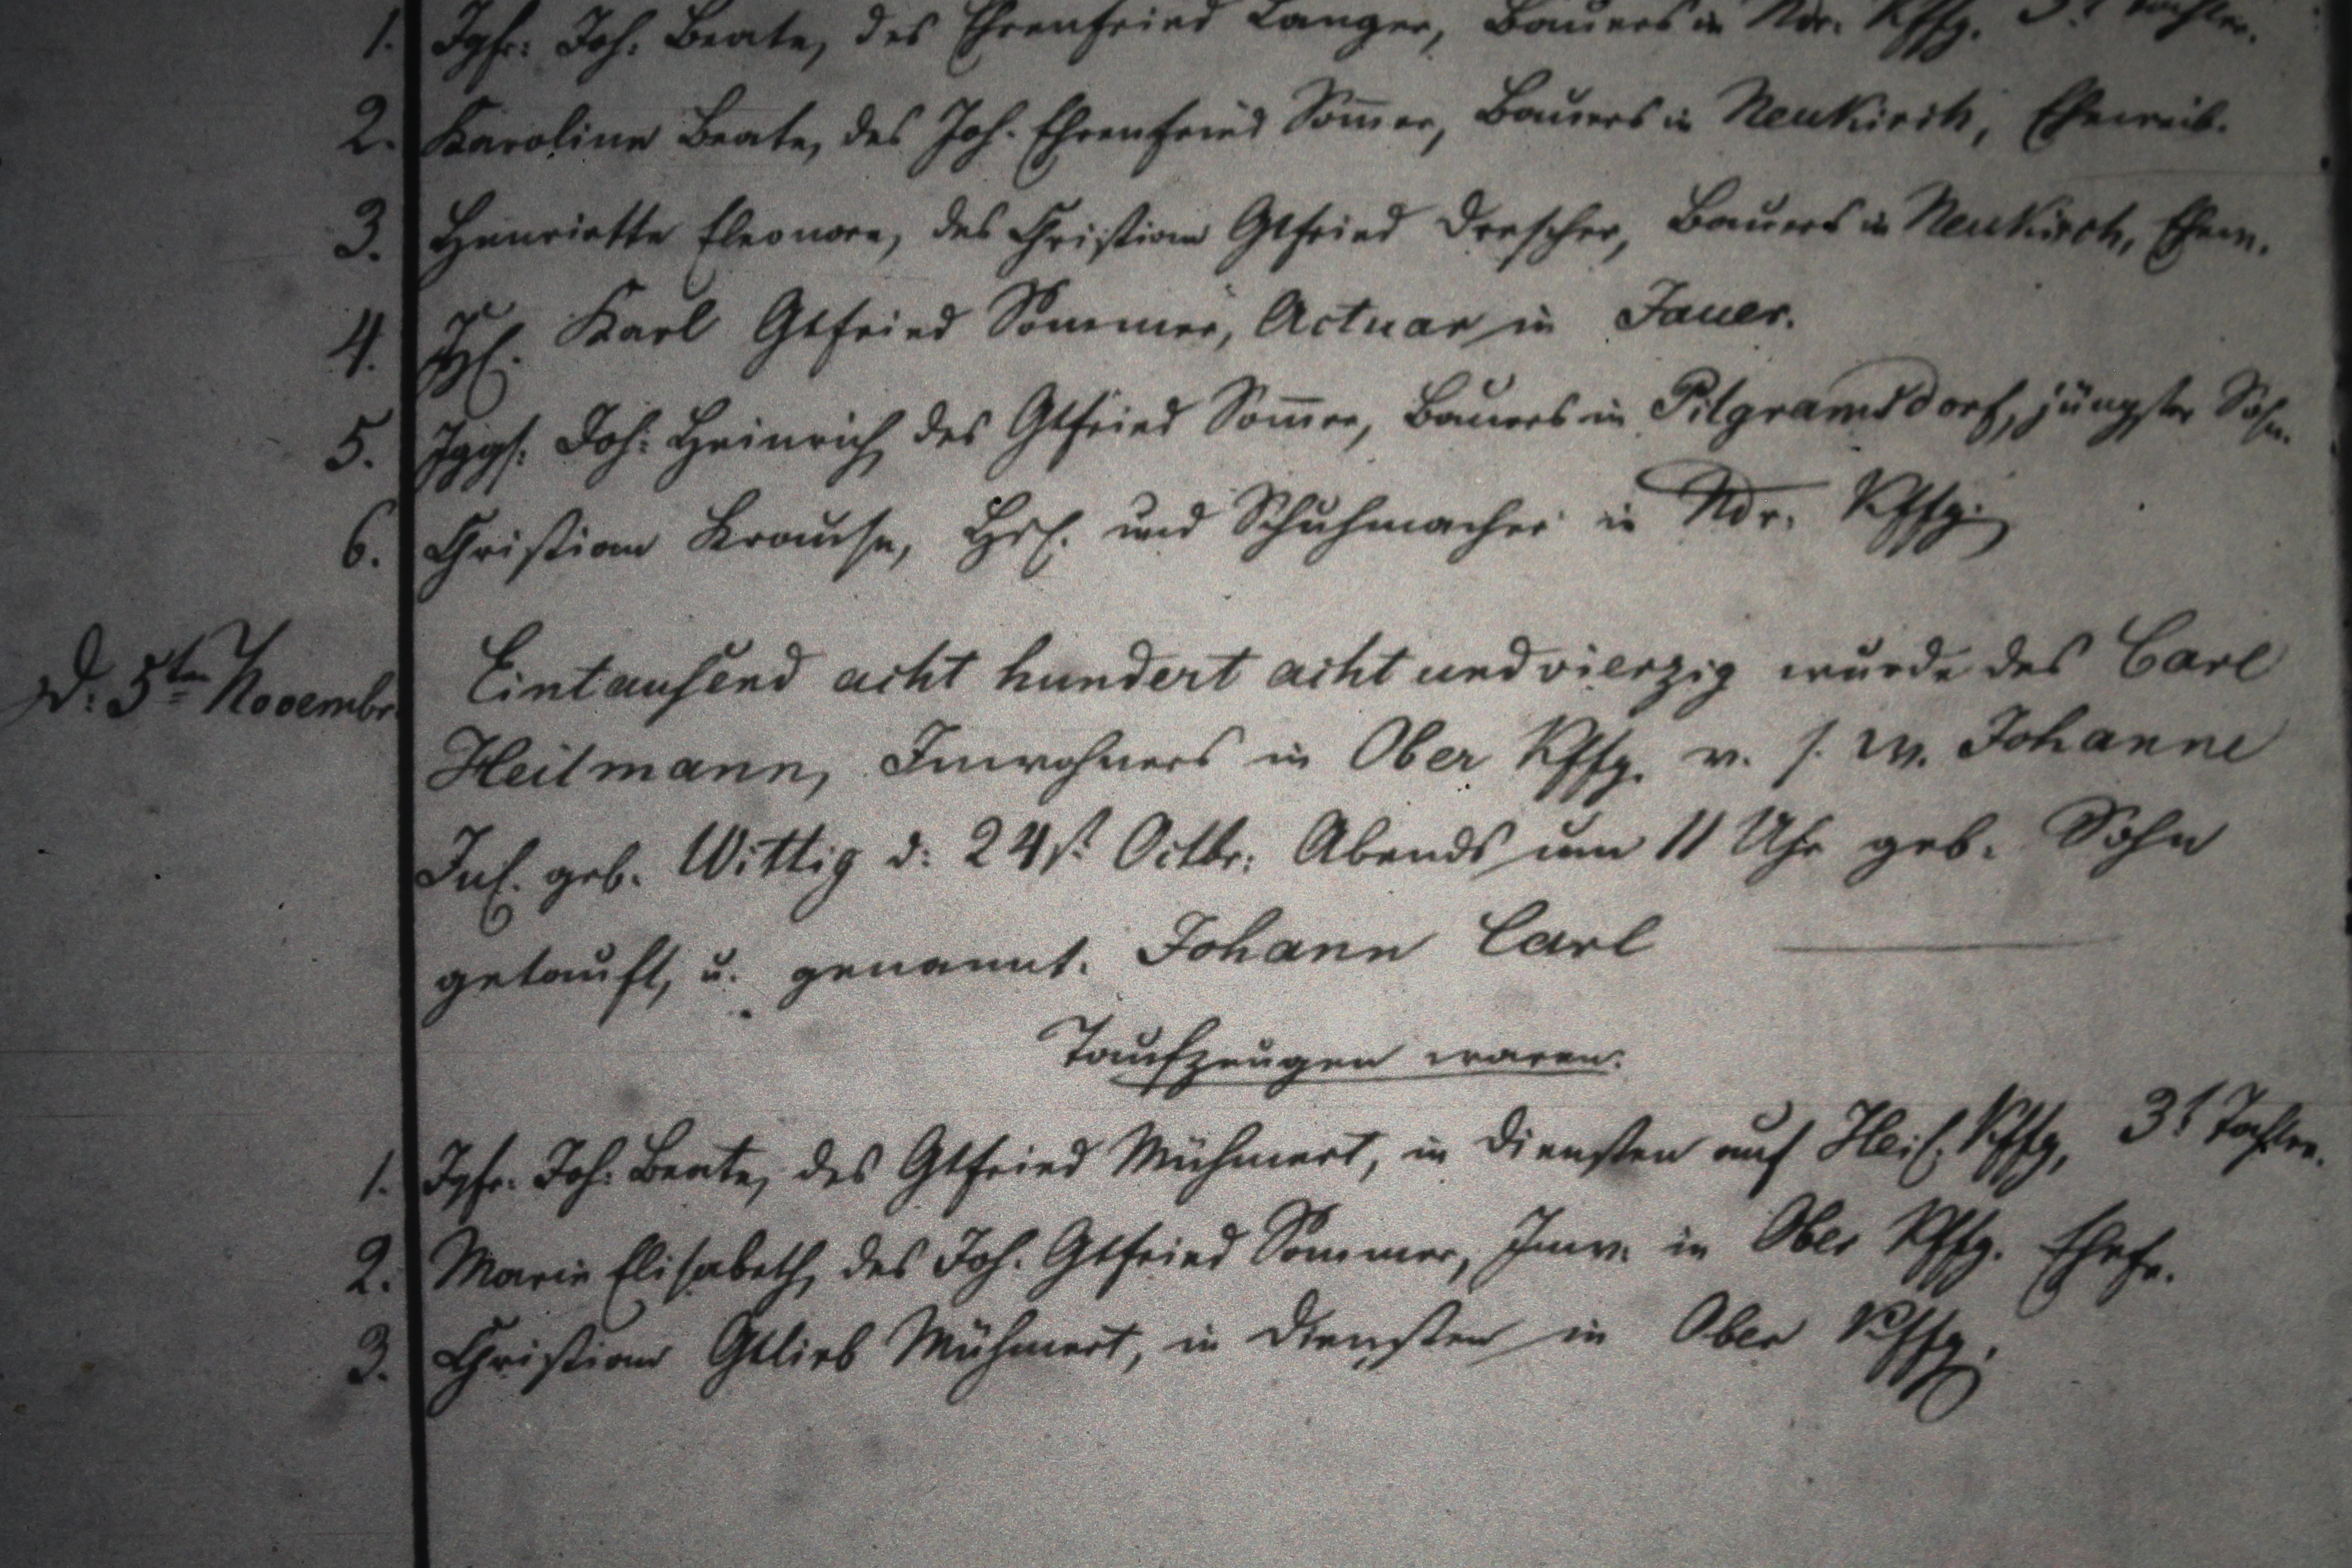 1. Jgfr: Joh: Beate, des Ehrenfried Langer, Bauers in Ndr. Kffg. 3t Tochter.
2. Karoline Beate, des Joh. Ehrenfried Som̄er, Bauers in Neukirch, Eheweib.
3. Henriette Eleonore, des Christian Gtfried Drescher, Bauers in Neukirch, Ehew.
4. Karl Gtfried Sommer, Actuar in Jauer.
5. Jggs: Joh: Heinrich, des Gtfried Som̄er, Bauers in Pilgramsdorf, jüngster Sohn.
6. Christian Krause, Hsl. und Schuhmacher in Ndr. Kffg.
D. 5ten Novembr. Eintausend acht hundert acht und vierzig wurde des Carl
Heilmann, Inwohners in Ober Kffg. v. s. W. Johanne
Jul. geb. Wittig d: 24st Octbr: Abends um 11 Uhr geb. Sohn
getauft, u. genannt. Johann Carl
Taufzeugen waren:
1. Jgfr. Joh: Beate, des Gtfried Mühmert, in Diensten auf Kffg, 3t Tochter.
2. Marie Elisabeth, des Joh. Gtfried Sommer, Inw. in Ober Kffg. Ehefr.
3. Christian Gtlieb Mühmert, in Diensten in Ober Kffg.